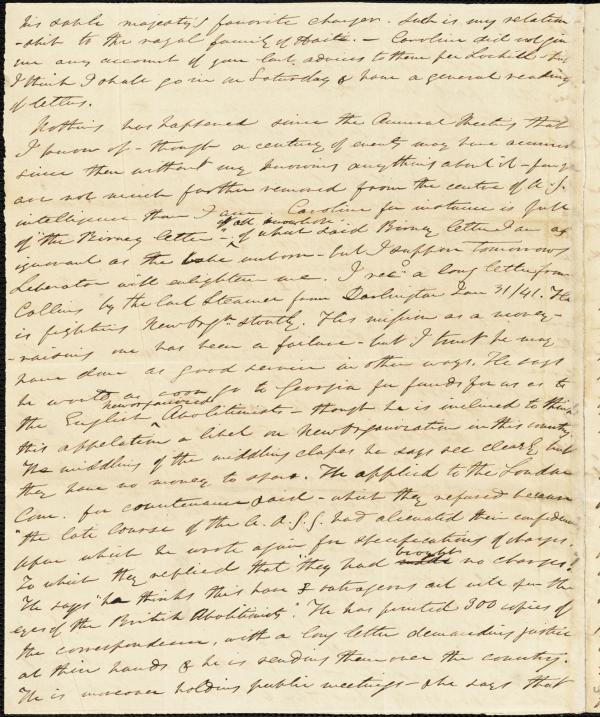 his sable majesty's favorite charger. Such is my relation
-ship to the royal family of Haiti. — Caroline did not give
me any account of your last advices to them per Lochill - but
I think I shall go in on Saturday & have a general reading
of letters.
Nothing has happened since the Annual Meeting that
I know of - though a century of events may have occurred
since then without my knowing anything about it - for you
are not much further removed from the centre of A. S.
intelligence than I am. Caroline for instance is full
of "the Birney letter - of which said Birney letter I am as
ignorant as the babe unborn - but I suppose tomorrow's
Liberator will enlighten me. I recd a long letter from
Collins by the last Steamer from Darlington Jan 31/41. He
is fighting New Orgn. stoutly. His mission as a money-
-raising one has been a failure - but I trust he may
have done as good service in other ways. He says
he would as soon go to Georgia for funds for us as to
the English new organized Abolitionists - though he is inclined to think
this appelation a libel on New Organization in this country
The middling of the middling classes he says see clearly but
they have no money to spare. He applied to the London
Com. for countenance & aid - which they refused because
"the late course of the A. A. S. S. had alienated their confidence
upon which he wrote again for specifications of charges.
To which they replied that "they had brought no charges!
He says "he thinks this base & outrageous act will open the
eyes of the British Abolitionists". He has printed 300 copies of
the correspondence, with a long letter demanding justice
at their hands & he is sending them over the country.
He is moreover holding public meetings - & he says that